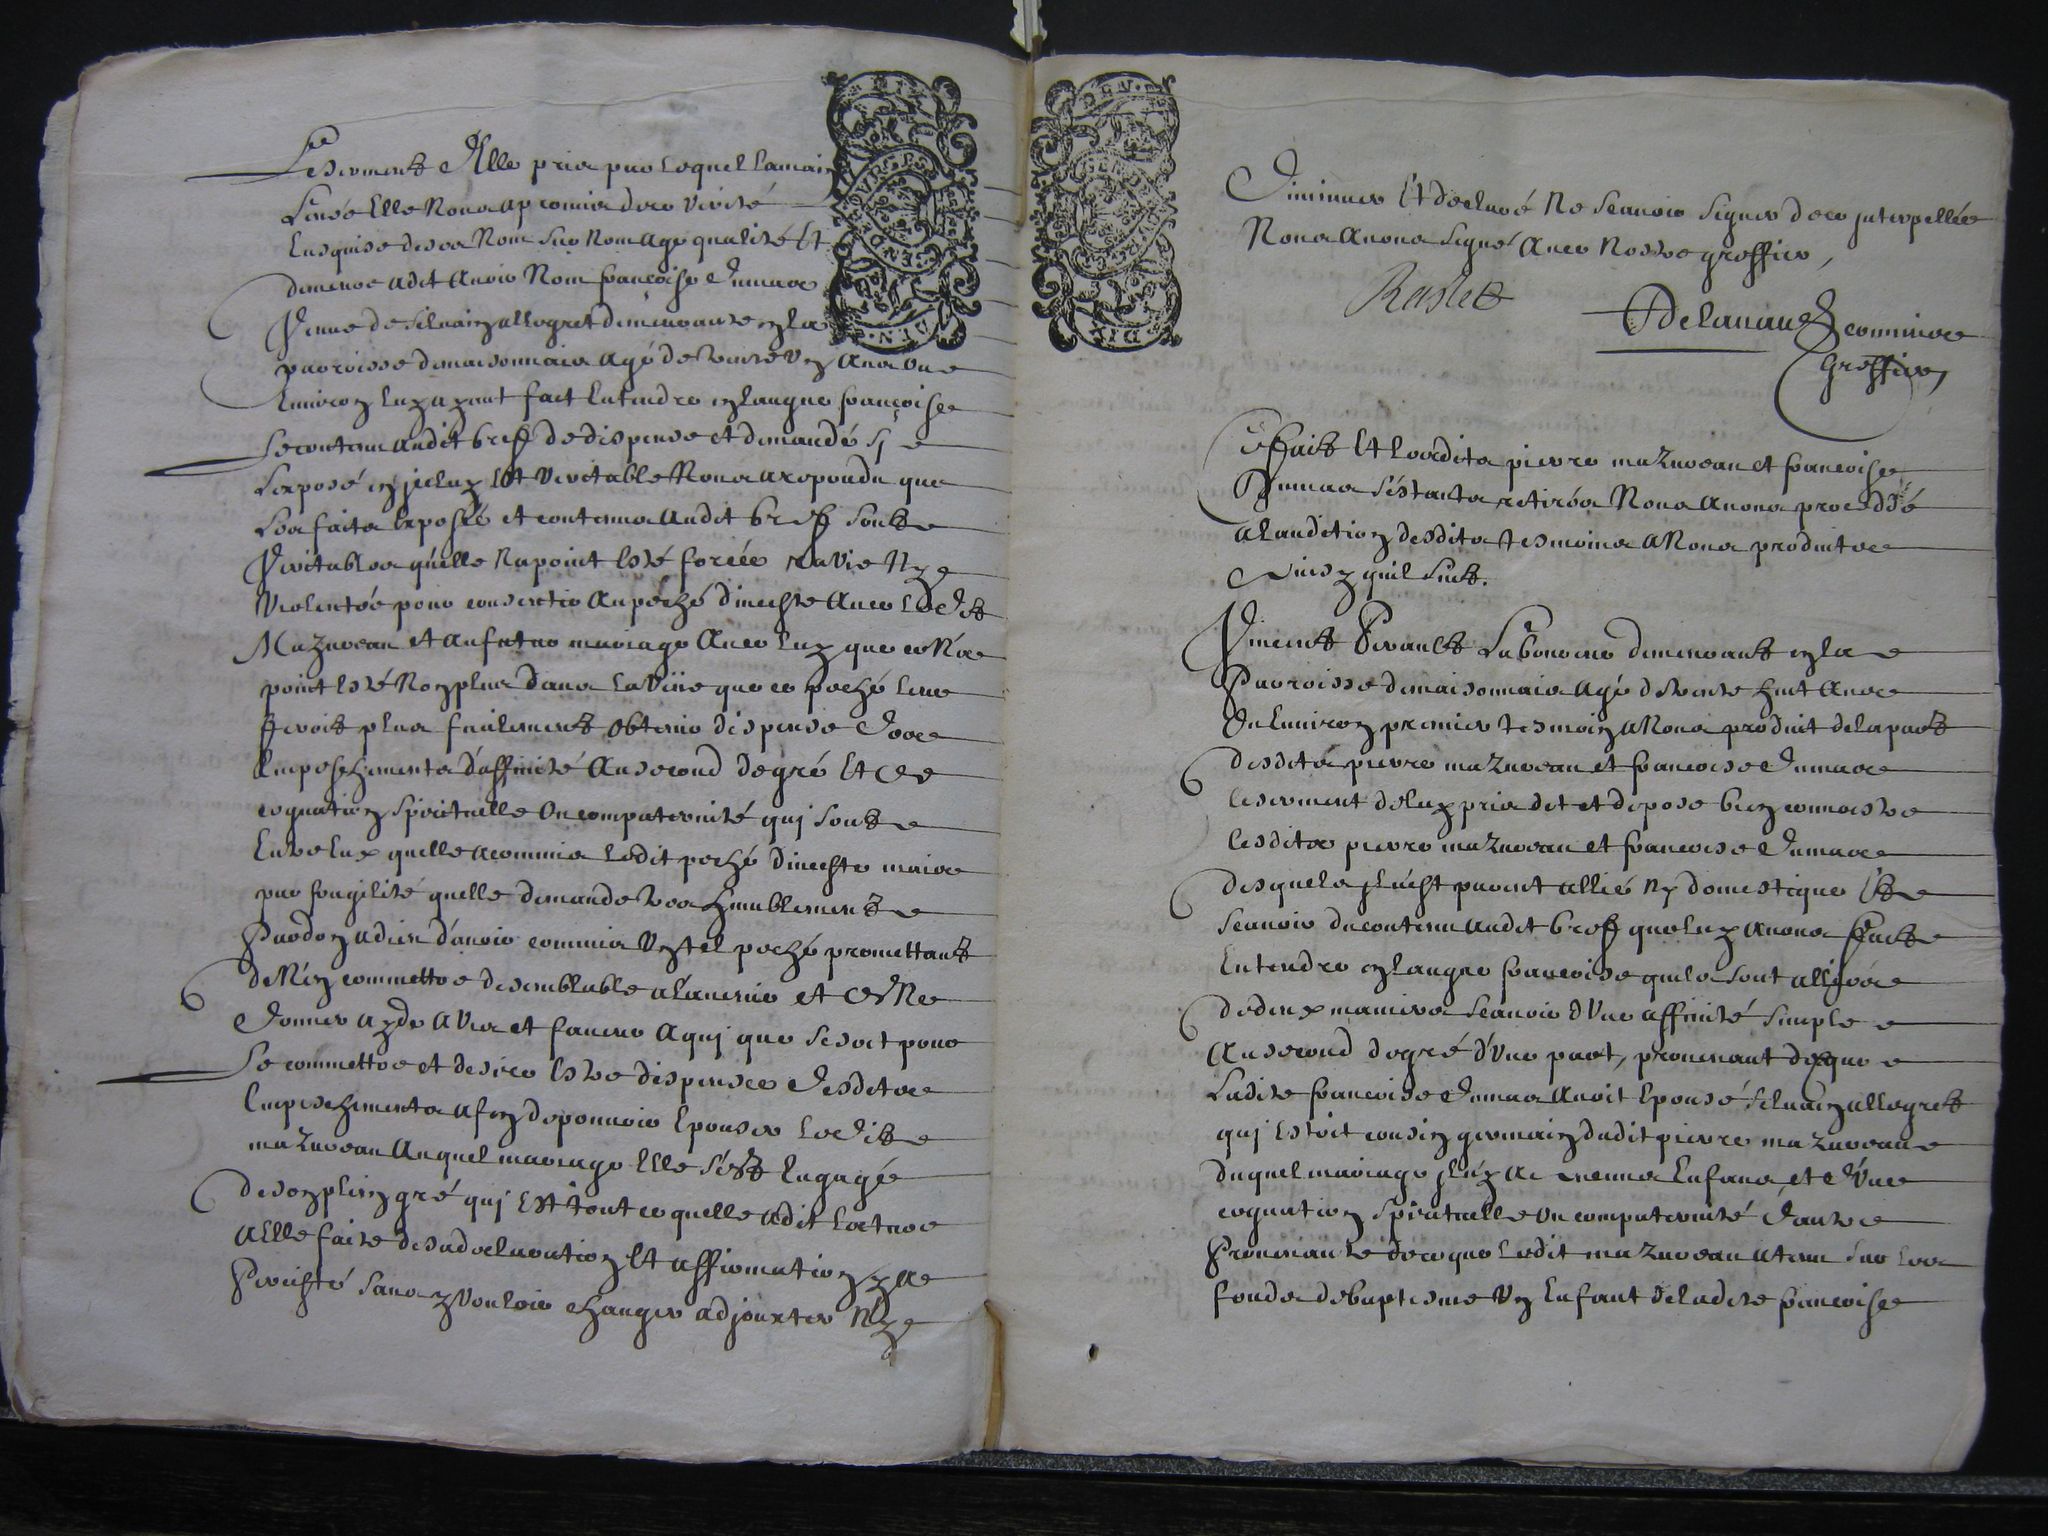 Le serment d'Elle pris par lequel la main
Levée Elle Nous a promis dire vérité
Enquise de son Nom Surnom age qualité Et
demeure a dit Avoir Nom françoise Dumas
Veuve de Silvain allegret demeurante en la
parroisse de maisonnais agé de trente Un Ans ou
Environ luy ayant fait Entendre en langue françoise
Le contenu audit bref de dispense et demandé sy
L'exposé en jceluy Est Veritable Nous a repondu que
Les faits Exposés et contenus audit bref sont
Veritables qu'elle Na point esté forcée ravie Ny
Violentée pour consentir Au peché d'inceste Avec Ledit
Mazuveau et Au futur mariage Avec luy que ce N'a
point esté Non plus dans la Vüe que ce peché leur
feroit plus facilement obtenir dispense des
Empeschements d'affinité Au second degré Et de
cognation Spirituelle ou compaternité qui sont
Entre Eux quelle a commis ledit peché d'inceste mais
par fragilité quelle demande tres humblement
Pardon a dieu d'avoir commis Un tel peché promettant
de N'en commettre de semblable a l'avenir et de Ne
Donner ayde Avis et faveur A qui que se soit pour
Le commettre et desire Estre dispensee desdits
Empeschements afin de pouvoir Epouser Ledit
mazuveau Auquel mariage Elle s'est Engagée
de son plein gré qui Est tout ce quelle a dit Lecture
a Elle faite de sa declaration Et affirmation y a
Persisté sans y Vouloir changer adjouxter Ny
Diminuer Et declaré Ne Scavoir Signer de ce jnterpellée
Nous Avons Signé Avec Nostre greffier,
Raslet
Delavaud commis
Greffier,
Ce fait Et lesdits pierre mazuveau et françoise
Dumas s'éstants retirés Nous Avons proceddé
a l'audition desdits tesmoins A Nous produits
Ainsy quil suit.
Vincent Perault Laboureur demeurant en la
Parroisse de maisonnais Agé de trente huit Ans
Ou Environ premier tesmoin A Nous produit de la part
desdits pierre mazuveau et françoise Dumas
le serment de luy pris dit et depose bien connoistre
lesdits pierre mazuveau et françoise Dumas
desquels jl n'est parent allié Ny domestique Et
Scavoir du contenu audit bref que luy Avons fait
Entendre en langue françoise quils sont alliés
de deux manieres Scavoir d'Une affinité simple
Au second degré d'Une part, provenant de que
Ladite françoise Dumas Avoit Epousé Silvain allegret
qui Estoit cousin germain dudit pierre mazuveau
duquel mariage jl y a Enfans et d'Une
cognation Spirituelle ou compaternité d'autre
Provenante de ce que ledit mazuveau a tenu sur les
fonds de baptesme Un Enfant de ladite françoise